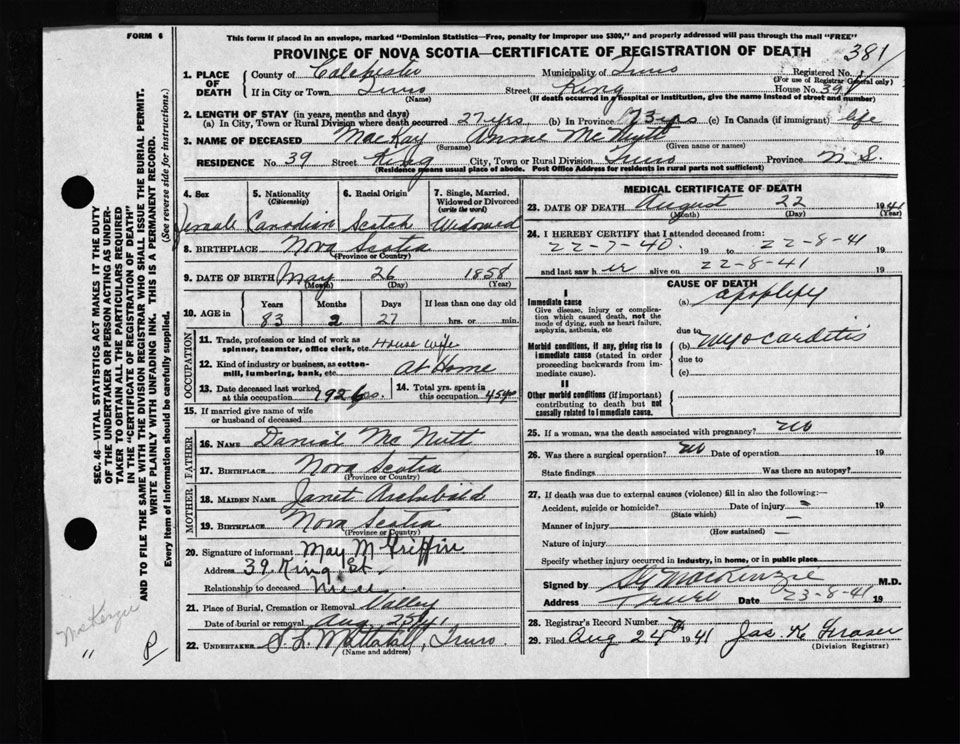 FORM 6
This form if placed in an envelope, marked "Dominion Statistics—Free, penalty for improper use $300," and properly addressed will pass through the mail "FREE"
PROVINCE OF NOVA SCOTIA—CERTIFICATE OF REGISTRATION OF DEATH 381
1. PLACE OF DEATH County of Colchester Municipality of Truro Registered No.
(For use of Registrar General only)
If in City or Town Truro Street King House No. 39
(Name) (If death occurred in a hospital or institution, give the name instead of street and number)
2. LENGTH OF STAY (in years, months and days)
(a) In City, Town or Rural Division where death occurred 27 yrs (b) In Province 73 yrs (c) In Canada (if immigrant) life
3. NAME OF DECEASED MacKay Annie McNutt
(Surname) (Given name or names)
RESIDENCE No. 39 Street King City, Town or Rural Division Truro Province N.S.
(Residence means usual place of abode. Post Office Address for residents in rural parts not sufficient)
SEC. 46—VITAL STATISTICS ACT MAKES IT THE DUTY
OF THE UNDERTAKER OR PERSON ACTING AS UNDER-
TAKER TO OBTAIN ALL THE PARTICULARS REQUIRED
IN THE "CERTIFICATE OF REGISTRATION OF DEATH"
AND TO FILE THE SAME WITH THE DIVISION REGISTRAR WHO SHALL ISSUE THE BURIAL PERMIT.
WRITE PLAINLY WITH UNFADING INK. THIS IS A PERMANENT RECORD.
Every item of information should be carefully supplied. (See reverse side for instructions.)
4. Sex 5. Nationality (Citizenship) 6. Racial Origin 7. Single, Married, Widowed or Divorced (write the word)
Female Canadian Scotch Widowed
8. BIRTHPLACE Nova Scotia
(Province or Country)
9. DATE OF BIRTH May 26 1858
(Month) (Day) (Year)
10. AGE in Years Months Days If less than one day old
83 2 27 hrs. or min.
OCCUPATION
11. Trade, profession or kind of work as spinner, teamster, office clerk, etc. House Wife
12. Kind of industry or business, as cotton-mill, lumbering, bank, etc. At Home
13. Date deceased last worked at this occupation 1926
14. Total yrs. spent in this occupation 45 yrs
15. If married give name of wife or husband of deceased
FATHER
16. NAME Daniel McNutt
17. BIRTHPLACE Nova Scotia
(Province or Country)
MOTHER
18. MAIDEN NAME Janet Archibald
19. BIRTHPLACE Nova Scotia
(Province or Country)
20. Signature of informant May M Griffin
Address 39 King St.
Relationship to deceased Niece
21. Place of Burial, Cremation or Removal Valley
Date of burial or removal Aug. 25/41
22. UNDERTAKER Truro
(Name and address)
MacKenzie
"
P
MEDICAL CERTIFICATE OF DEATH
23. DATE OF DEATH August 22 1941
(Month) (Day) (Year)
24. I HEREBY CERTIFY that I attended deceased from:
22-7-40 19 to 22-8-41 19
and last saw her alive on 22-8-41 19
CAUSE OF DEATH
I
Immediate cause
Give disease, injury or complication which caused death, not the mode of dying, such as heart failure, asphyxia, asthenia, etc
(a) apoplexy
due to
Morbid conditions, if any, giving rise to immediate cause (stated in order proceeding backwards from immediate cause).
(b) Myocarditis
due to
(c)
II
Other morbid conditions (if important) contributing to death but not causally related to immediate cause.
25. If a woman, was the death associated with pregnancy? no
26. Was there a surgical operation? no Date of operation 19
State findings Was there an autopsy?
27. If death was due to external causes (violence) fill in also the following:—
Accident, suicide or homicide? Date of injury — 19
(State which)
Manner of injury —
(How sustained)
Nature of injury
Specify whether injury occurred in industry, in home, or in public place
Signed by MacKenzie M.D.
Address Truro Date 23-8-41 19
28. Registrar's Record Number
29. Files Aug 24th 1941 Jas. K Fraser
(Division Registrar)